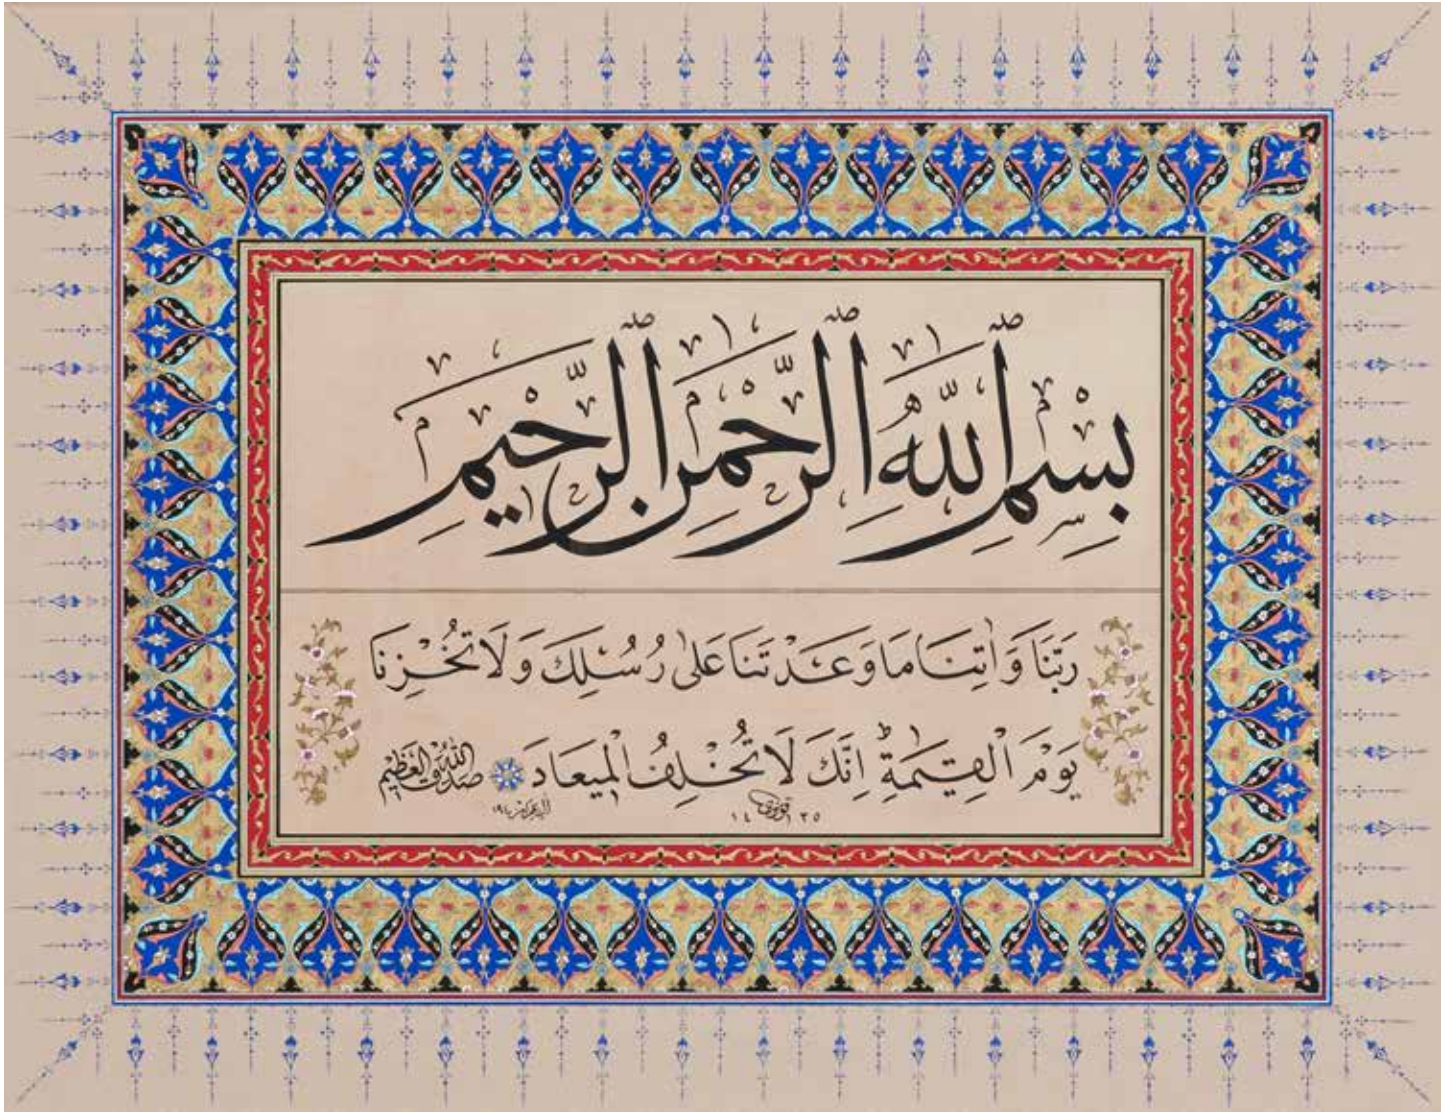 بِسْمِ اللّٰهِ الرَّحْمٰنِ الرَّحِيمِ
رَبَّنَا وَاٰتِنَا مَا وَعَدْتَنَا عَلٰى رُسُلِكَ وَلَا تُخْزِنَا
يَوْمَ الْقِيٰمَةِ ط اِنَّكَ لَا تُخْلِفُ الْمِيعَادَ صدق الله العظيم